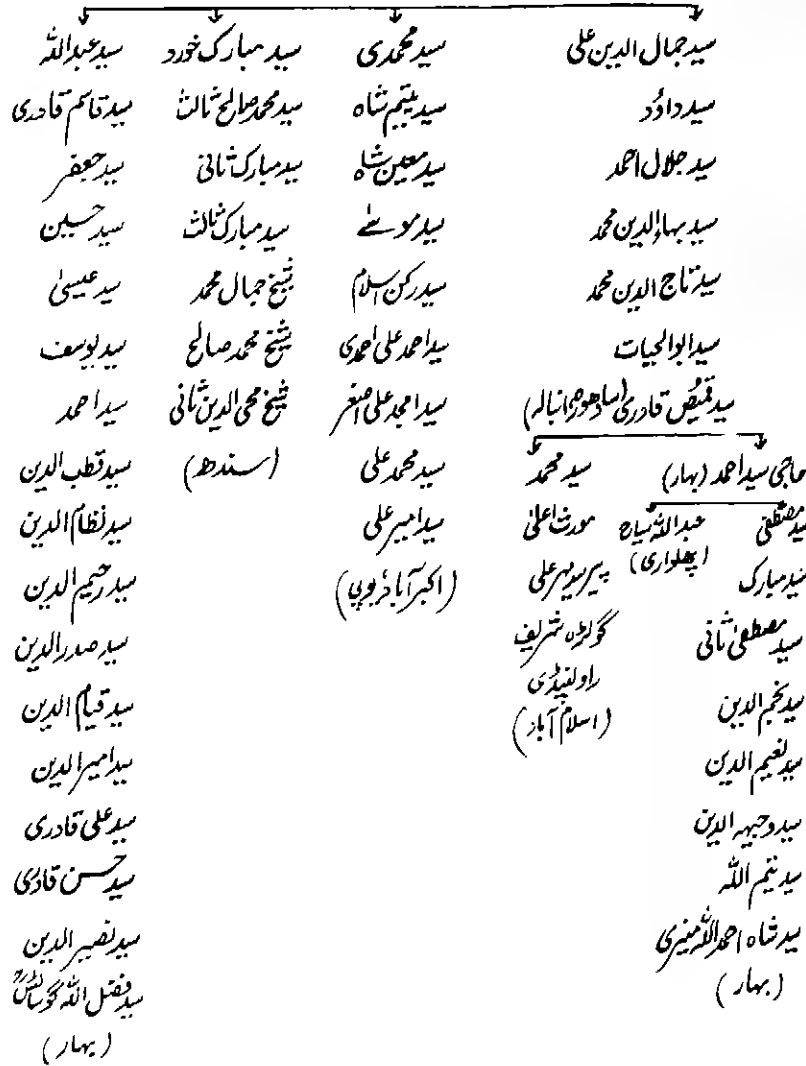 سید جمال الدین علی
سید داؤد
سید جلال احمد
سید بہاءالدین محمد
سید تاج الدین محمد
سید ابوالحیات
سید قمیص قادری (سادھورہ انبالہ)
حاجی سید احمد (بہار)
سید مصطفی
سید مبارک
سید مصطفیٰ ثانی
سید نجم الدین
سید نعیم الدین
سید وجیہہ الدین
سید یتیم اللہ
سید شاہ احمد اللہ منیری
(بہار)
عبداللہ سیاح
(پھلواری)
سید محمد
مورث اعلیٰ
پیر سید مہر علی
گولڑہ شریف
راولپنڈی
(اسلام آباد)
سید محمدی
سید یتیم شاہ
سید معین شاہ
سید موسےٰ
سید رکن اسلام
سید احمد علی احمدی
سید امجد علی اصغر
سید محمد علی
سید امیر علی
(اکبر آباد یوپی)
سید مبارک خورد
سید محمد صالح ثالث
سید مبارک ثانی
سید مبارک ثالث
شیخ جمال محمد
شیخ محمد صالح
شیخ محی الدین ثانی
(سندھ)
سید عبداللہ
سید قاسم قادری
سید جعفر
سید حسین
سید عیسیٰ
سید یوسف
سید احمد
سید قطب الدین
سید نظام الدین
سید رحیم الدین
سید صدر الدین
سید قیام الدین
سید امیر الدین
سید علی قادری
سید حسن قادری
سید نصیر الدین
سید فضل اللہ
(بہار)